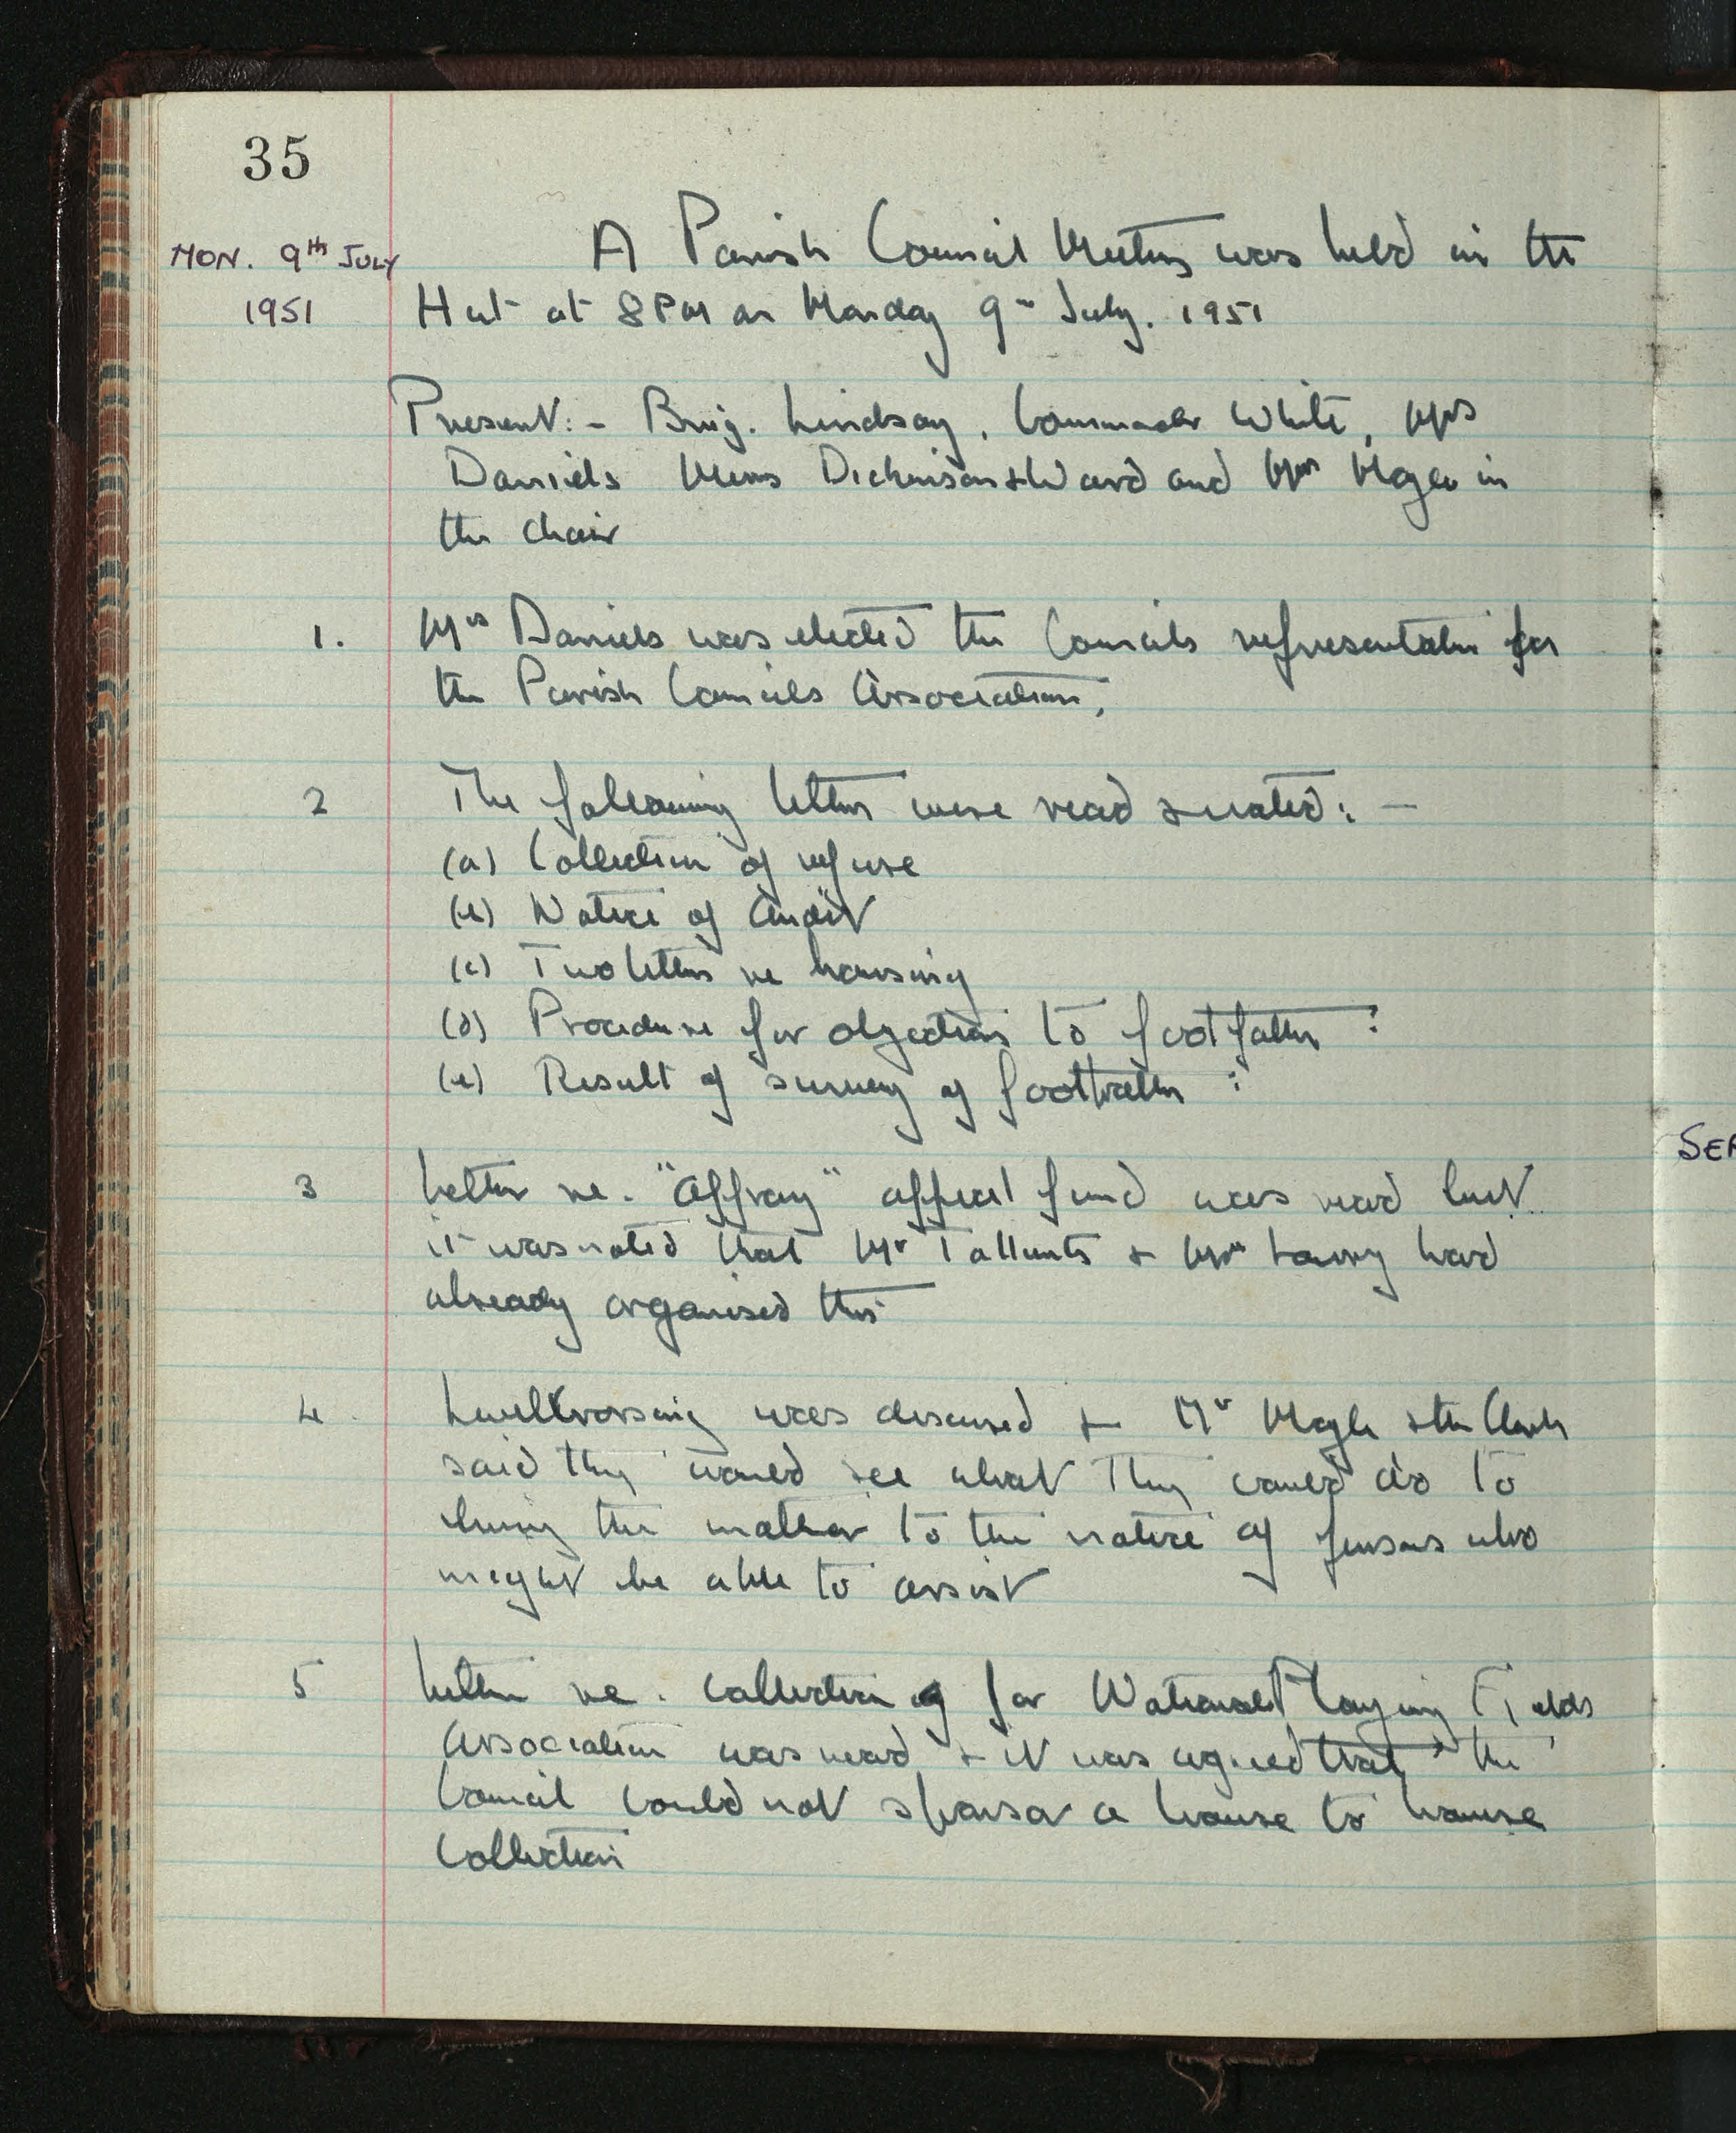 35
MON. 9th JULY
1951
A Parish Council Meeting was held in the
Hut at 8 PM on Monday 9th July. 1951
Present:- Brig. Lindsay, Commander White, Mrs
Daniels Messrs Dickinson & Ward and Mr in
the chair
1. Mrs Daniels was elected the Councils representative for
the Parish Councils Association,
2 The following letters were read & noted:-
(a) Collection of refuse
(b) Notice of Audit
(c) Two letters re housing
(d) Procedure for objections to footpaths :
(e) Result of survey of footpaths :
3 Letter re. "Affray" appeal fund was read but
it was noted that Mr Tallents & Mr had
already organised this
4. Level Crossing was discussed & Mr & the Clerk
said they would see what they could do to
bring the matter to the notice of persons who
might be able to assist
5 Letter re. collection for National Playing Fields
Association was read & it was agreed that the
Council could not sponsor a house to house
collection
SEP